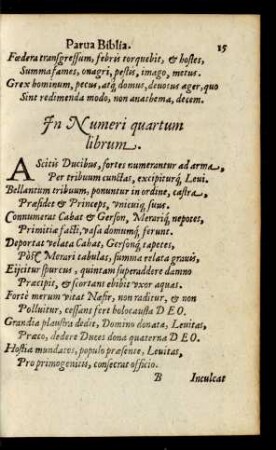 Parua Biblia. 15
Fœdera transgressum, febris torquebit, & hostes,
Summa fames, onagri, pestis, imago, metus.
Grex hominum, pecus, atq́; domus, deuotus ager, quo
Sint redimenda modo, non anathema, decem.
In Numeri quartum
librum.
Ascitis Ducibus, fortes numerantur ad arma,
Per tribuum cunctas, excipiturq́; Leui.
Bellantum tribuum, ponuntur in ordine, castra,
Præsidet & Princeps, vnicuiq́; suus.
Connumerat Cahat & Gerson, Merariq́; nepotes,
Primitia facti, vasa domumq́; ferunt.
Deportat velata Cahat, Gersonq́; tapetes,
Pòst Merari tabulas, summa relata grauis,
Eijcitur spurcus, quintam superaddere damno
Præcipit, & scortans ebibit vxor aquas.
Fortè merum vitat Nasir, non raditur, & non
Polluitur, cessans fert holocausta DEO.
Grandia plaustra dedit, Domino donata, Leuitas,
Præco, dedere Duces dona quaterna DEO.
Hostia mundatos, populo præsente, Leuitas,
Pro primogenitis, consecrat officio.
B Inculcat